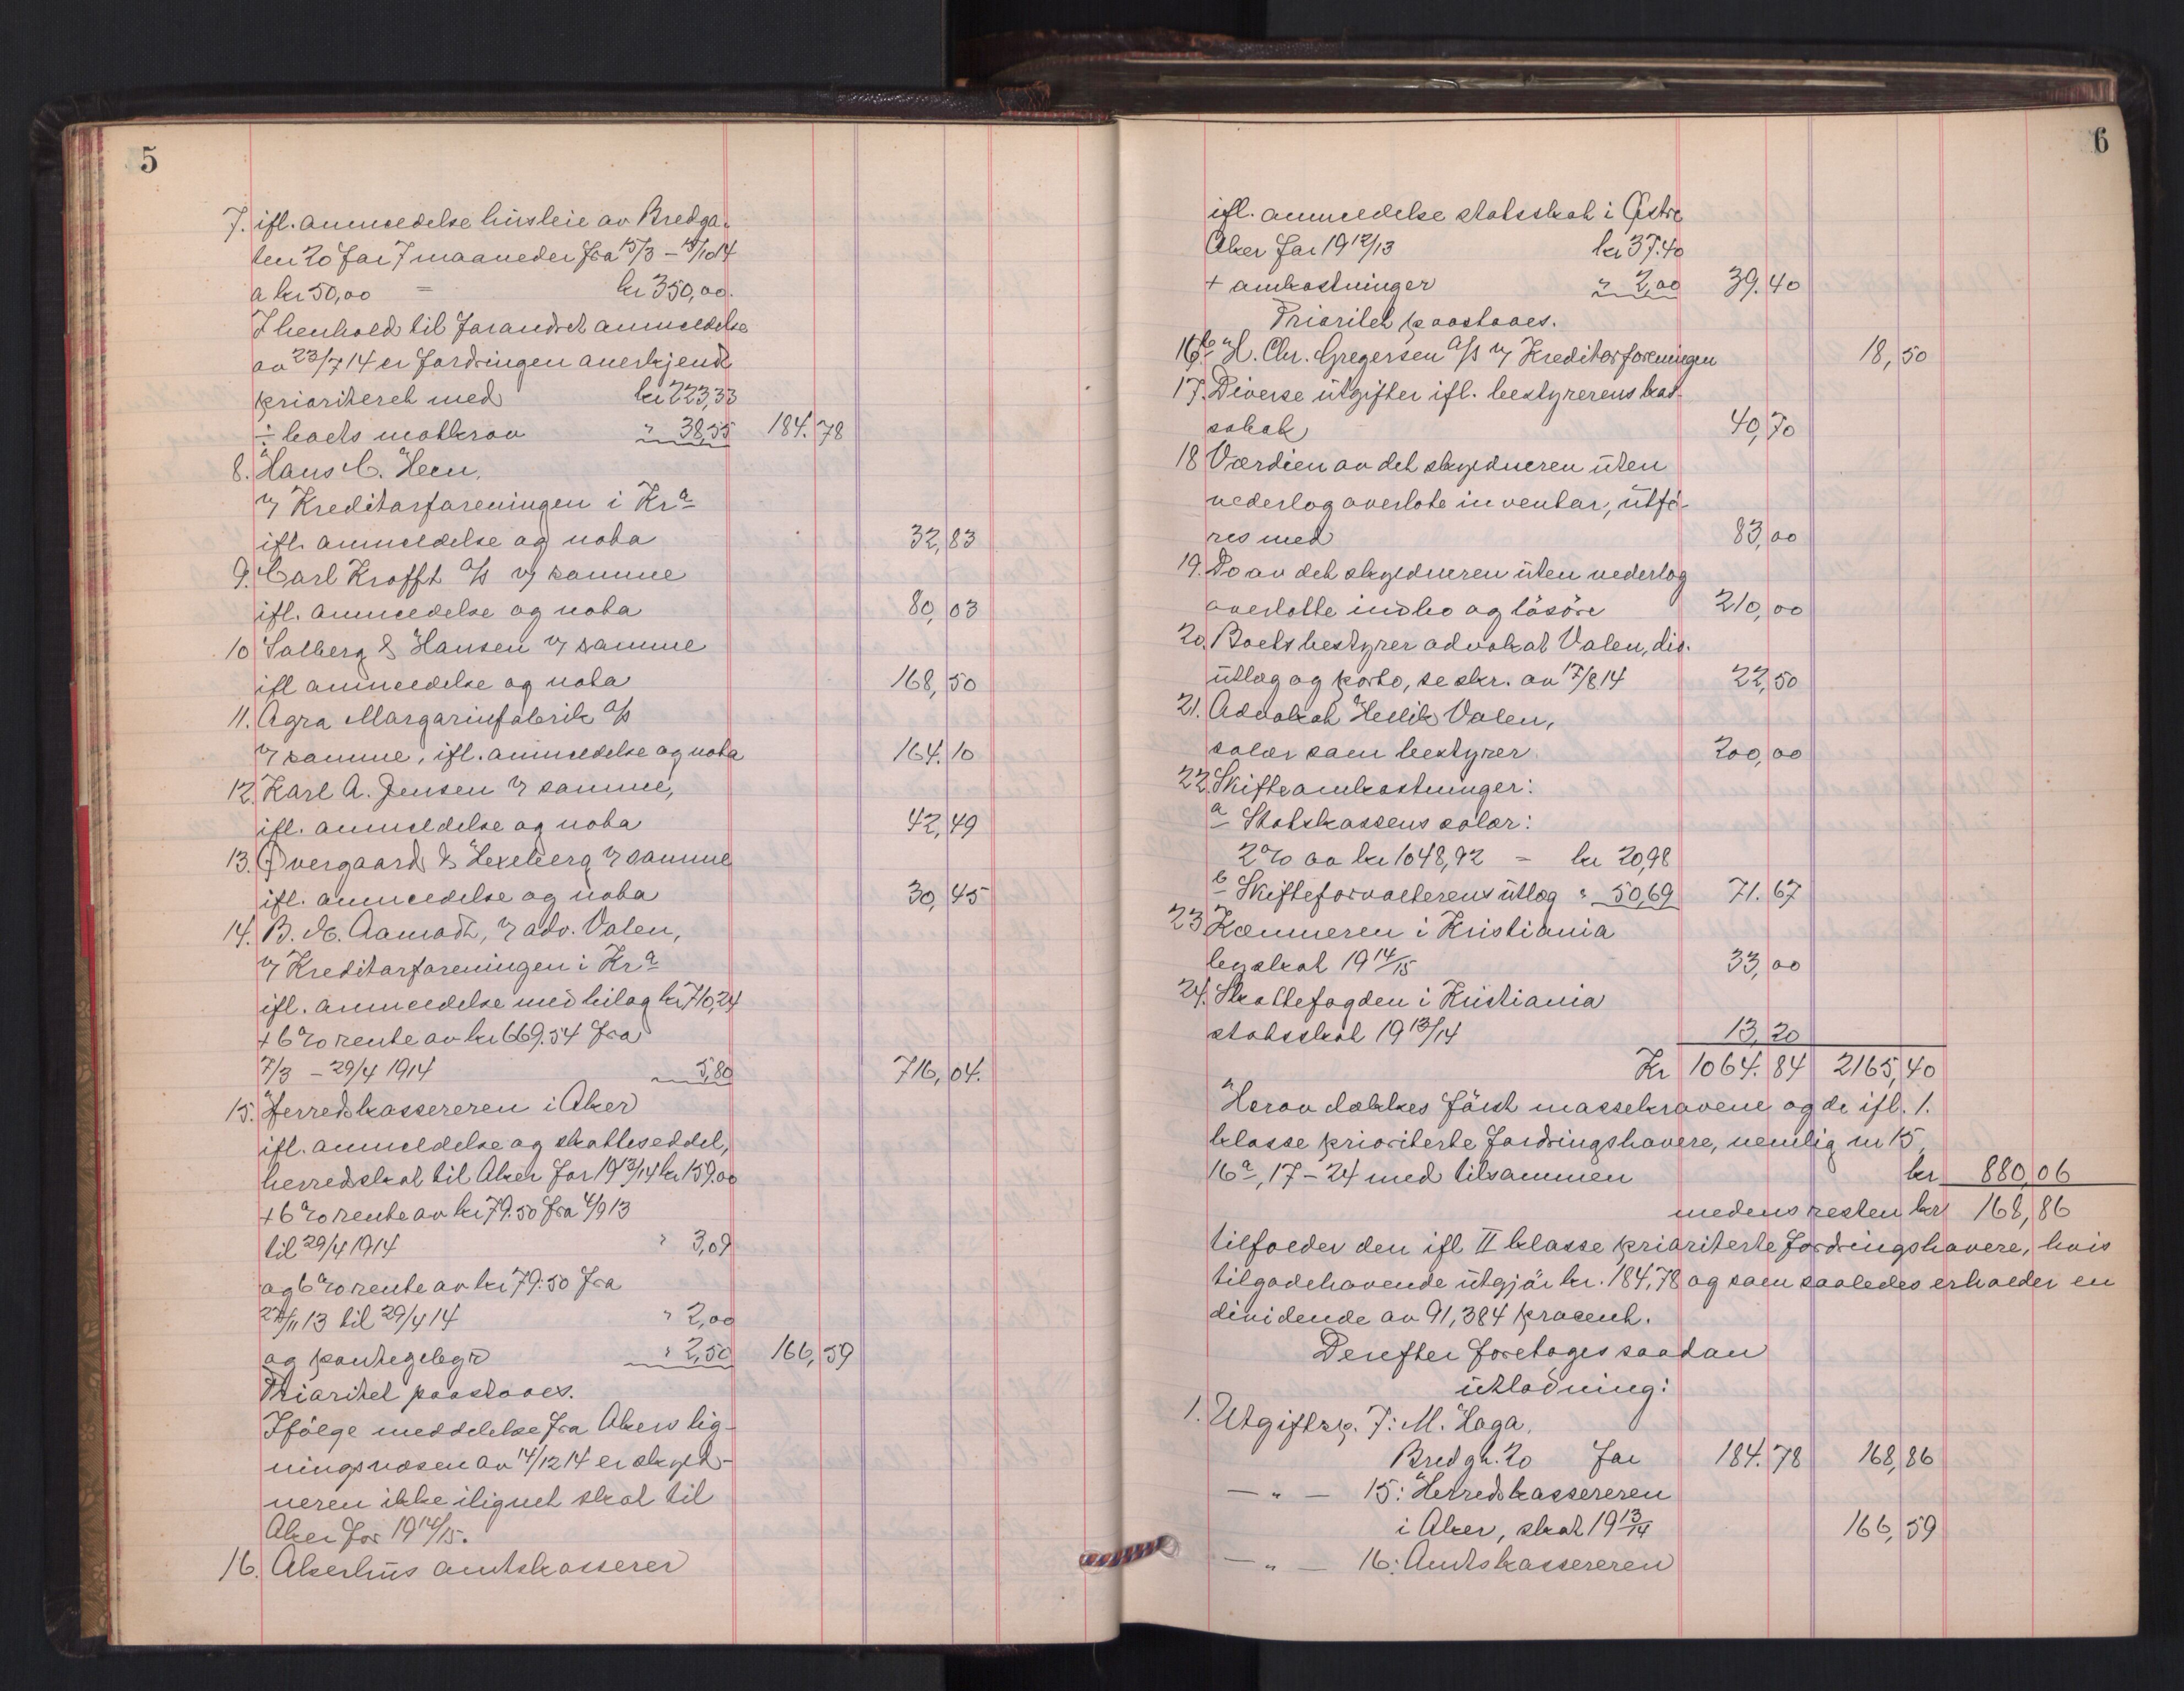 5
7. ifl. anmeldelse husleie av Bredga-
ten 20 for 7 maaneder fra 15/3 – 15/10 14
a kr 50,00 = kr 350,00.
I henhold til forandret anmeldelse
av 23/7 14 er fordringen anerkjendt
prioritert med kr 223,33
÷ boets motkrav " 38,55 184.78
8. Hans C. Heen.
v/ Kreditorforeningen i Kra
ifl. anmeldelse og nota 32,83
9. Carl Krafft A/S v/ samme
ifl. anmeldelse og nota 80,03
10 Salberg & Hansen v/ samme
ifl anmeldelse og nota 168,50
11. Agra Margarinfabrik A/S
v/ samme, ifl. anmeldelse og nota 164.10
12. Karl A. Jensen v/ samme,
ifl. anmeldelse og nota 42,49
13. Øvergaard & Hexeberg v/ samme
ifl. anmeldelse og nota 30,45
14. B. M. Aamodt, v/ adv. Valen,
v/ Kreditorforeningen i Kra
ifl. anmeldelse med bilag kr 710,24
+ 6 % rente av kr 669.54 fra
7/3 – 29/4 1914 5,80 716,04.
15. Herredskassereren i Aker
ifl. anmeldelse og skatteseddel,
herredskat til Aker for 1913/14 kr 159.00
+ 6 % rente av kr 79.50 fra 4/9 13
til 29/4 1914 " 3,09
og 6 % rente av kr 79.50 fra
27/11 13 til 29/4 14 " 2,00
og pantegebyr " 2,50 166,59
Prioritet paastaaes.
Ifölge meddelelse fra Akers lig-
ningsvæsen av 14/12 14 er skyld-
neren ikke ilignet skat til
Aker for 1914/15.
16. Akerhus amtskasserer
6
ifl. anmeldelse statsskat i Østre
Aker for 1912/13 kr 37.40
+ omkostninger " 2,00 39.40
Prioritet paastaaes.
16b H. Chr. Gregersen A/S v/ Kreditorforeningen 18,50
17. Diverse utgifter ifl. bestyrerens kas-
sabok 40,70
18 Værdien av det skyldneren uten
vederlag overlate inventar, utfö-
res med 83,00
19. Do av det skyldneren uten vederlag
overlatte indbo og lösöre 210,00
20. Boets bestyrer advokat Valen, div.
utlæg og porto, se skr. av 17/8 14 22,50
21. Advokat Hellik Valen,
salær som bestyrer 200,00
22. Skifteomkostninger:
a Statskassens salær:
2 % av kr 1048,92 – kr 20,98
b Skifteforvalterens utlæg " 50,69 71.67
23 Kæmneren i Kristiania
byskat 1914/15 33,00
24. Skattefogden i Kristiania
statsskat 1913/14 13,20
Kr 1064.84 2165,40
Herav dækkes först massekravene og de ifl. 1.
klasse prioriterte fordringshavere, nemlig nr 15,
16a, 17 – 24 med tilsammen kr 880,06
medens resten kr 168,86
tilfalder den ifl II klasse prioriterte fordringshavere, hvis
tilgodehavende utgjör kr. 184,78 og som saaledes erholder en
dividende av 91,384 procent.
Derefter foretages saadan
utlodning:
1. Utgiftsp. 7: M. Haga,
Bredgt. 20 for 184.78 168,86
— " — 15: Herredskassereren
i Aker, skat 1913/14 166,59
— " — 16: Amtskassereren